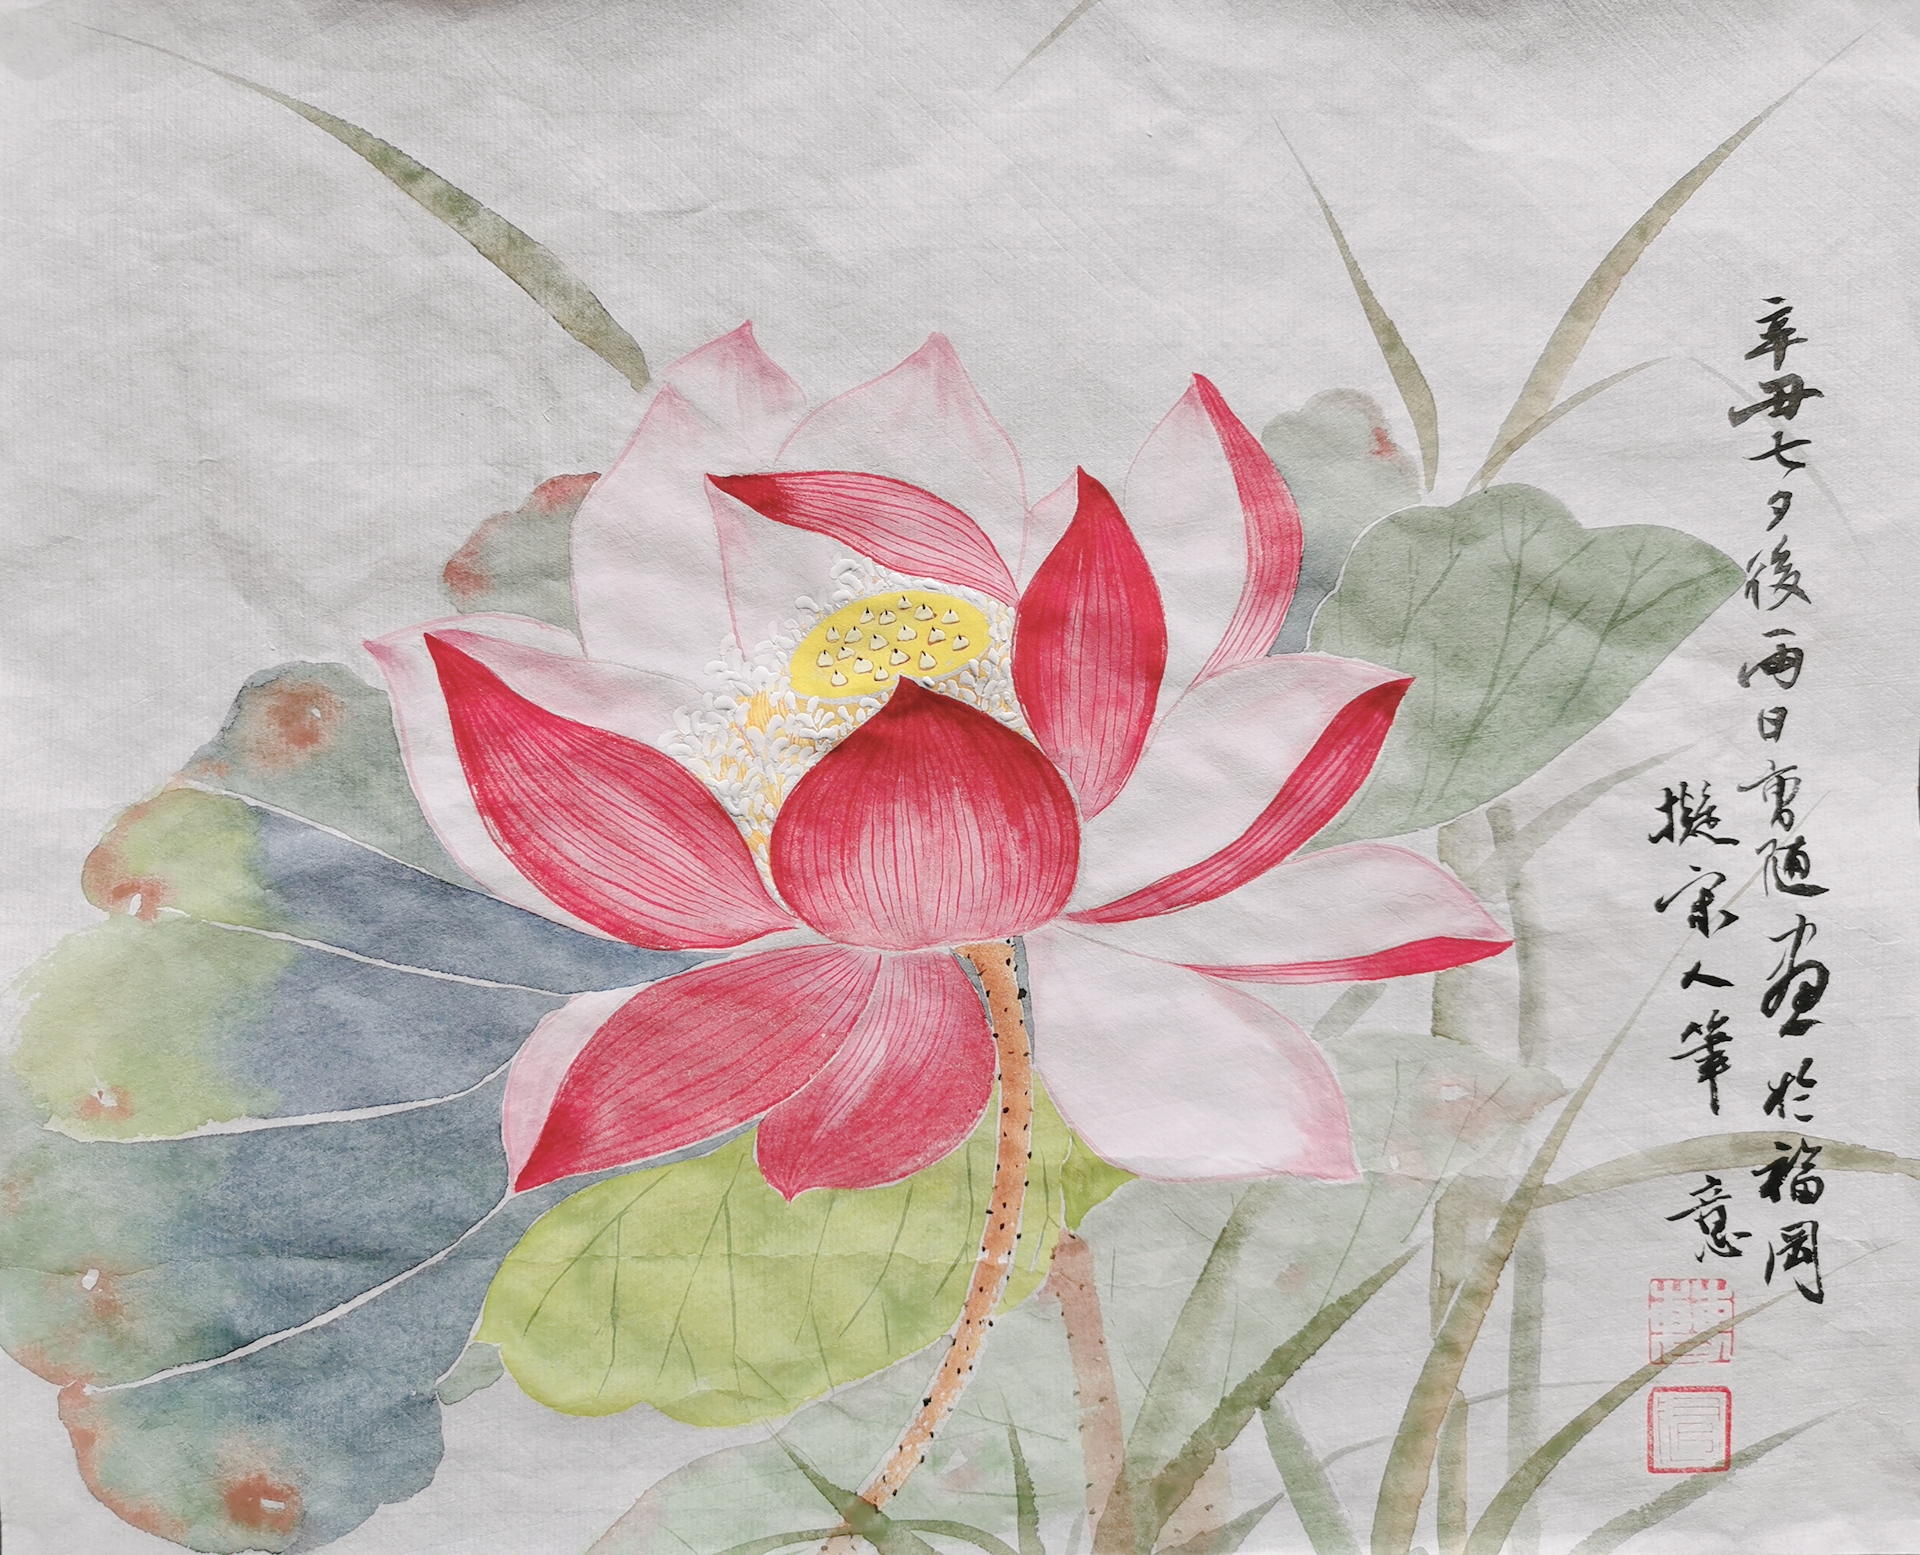 辛丑七夕後兩日曹随画於福岡
擬宋人筆意